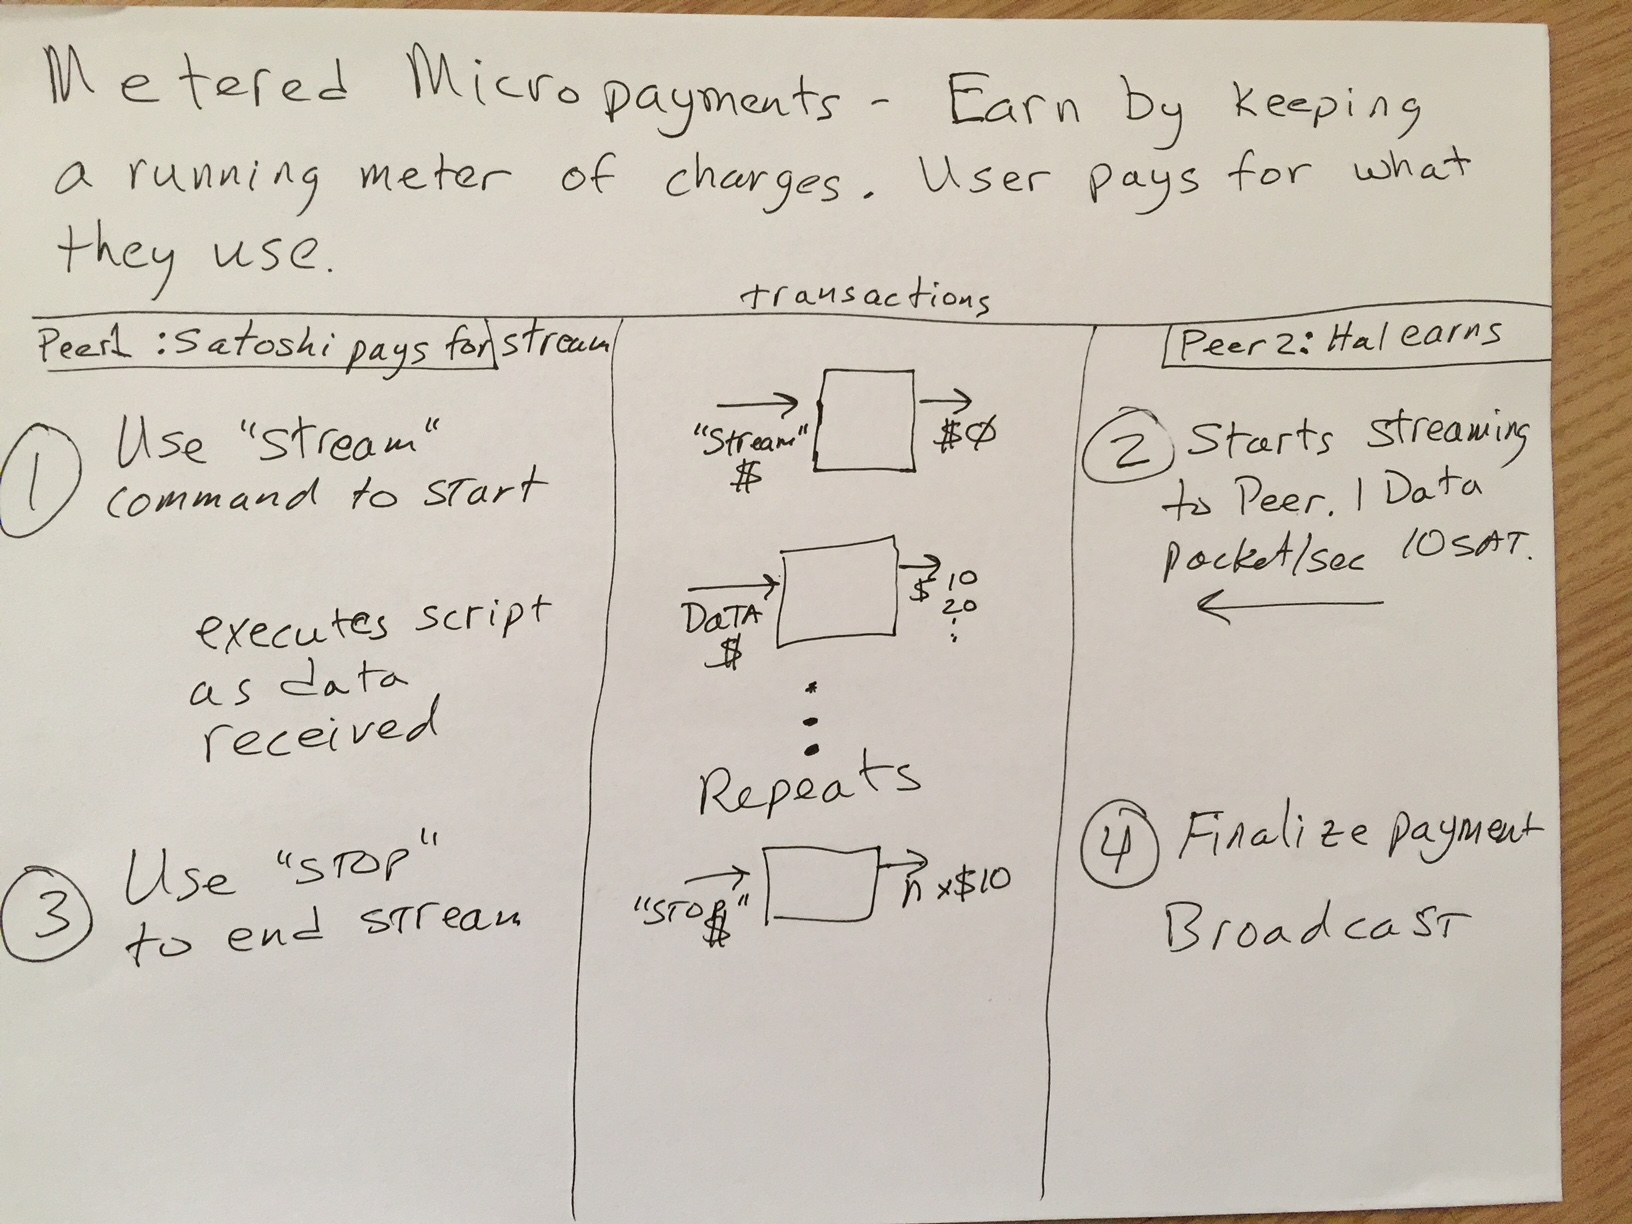 Metered Micropayments - Earn by keeping
a running meter of charges. User pays for what
they use.
transactions
Peer1: Satoshi pays for stream
Peer2: Hal earns
1
Use "stream"
command to start
executes script
as data
received
3
Use "STOP"
to end stream
"Stream"
$
$0
DATA
$
10
$
20
:
Repeats
"STOP"
$
n x $10
2
Starts streaming
to Peer. 1 Data
packet/sec 10 SAT.
4
Finalize payment
Broadcast